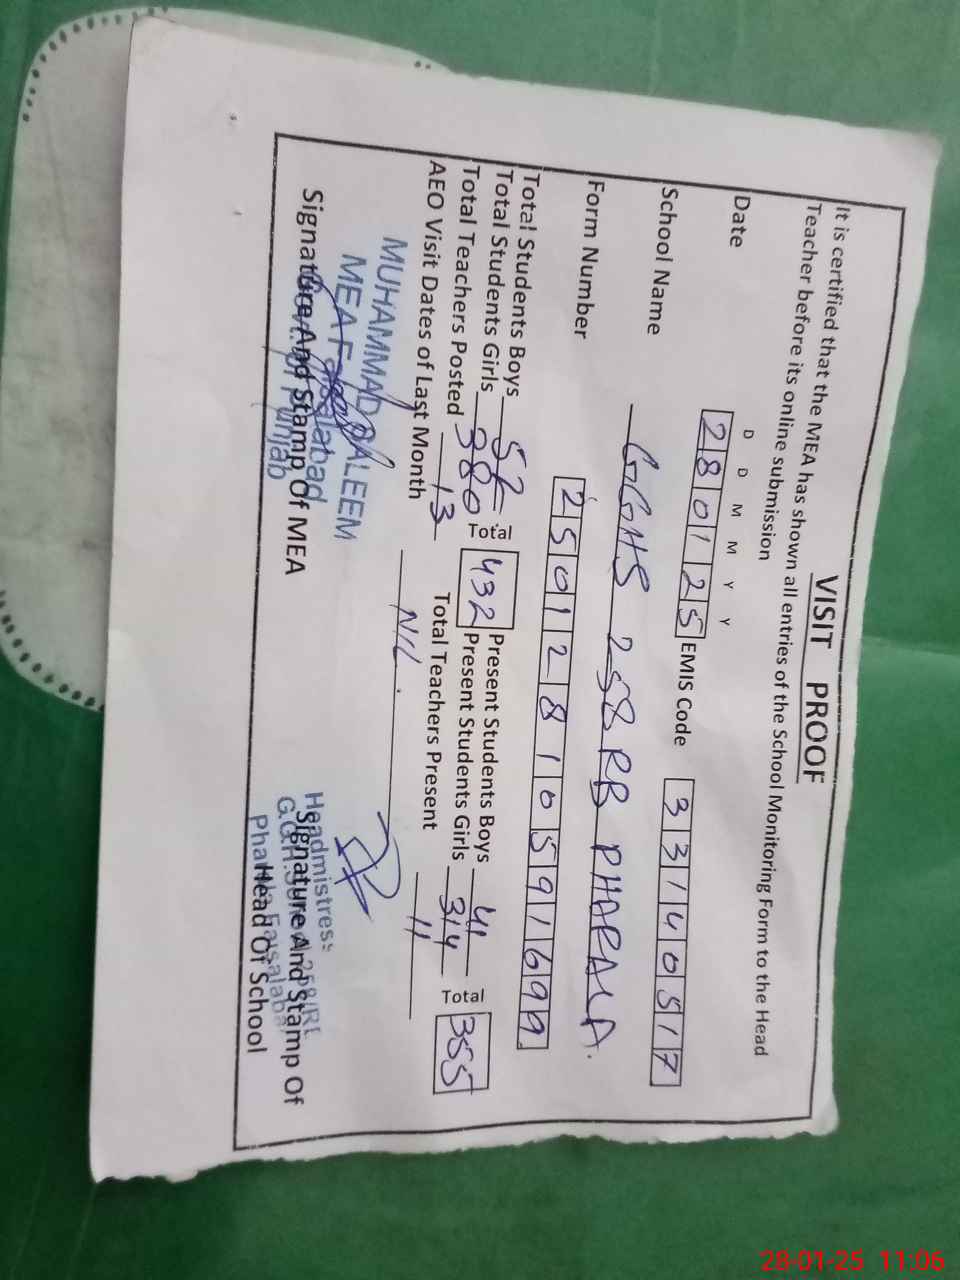 VISIT PROOF
It is certified that the MEA has shown all entries of the School Monitoring Form to the Head
Teacher before its online submission
D D M M Y Y
Date 280125 EMIS Code 33140517
School Name GGHS 258 RB PHARALA.
Form Number 2501281059169 9
Total Students Boys 52 Total 432 Present Students Boys 41 Total 355
Total Students Girls 380 Present Students Girls 314
Total Teachers Posted 13 Total Teachers Present 11
AEO Visit Dates of Last Month NIL.
MUHAMMAD ALEEM
MEA Faisalabad
Govt. of Punjab
Signature And Stamp Of MEA
Headmistress
Signature And Stamp Of
Head Of School
28-01-25 11:06